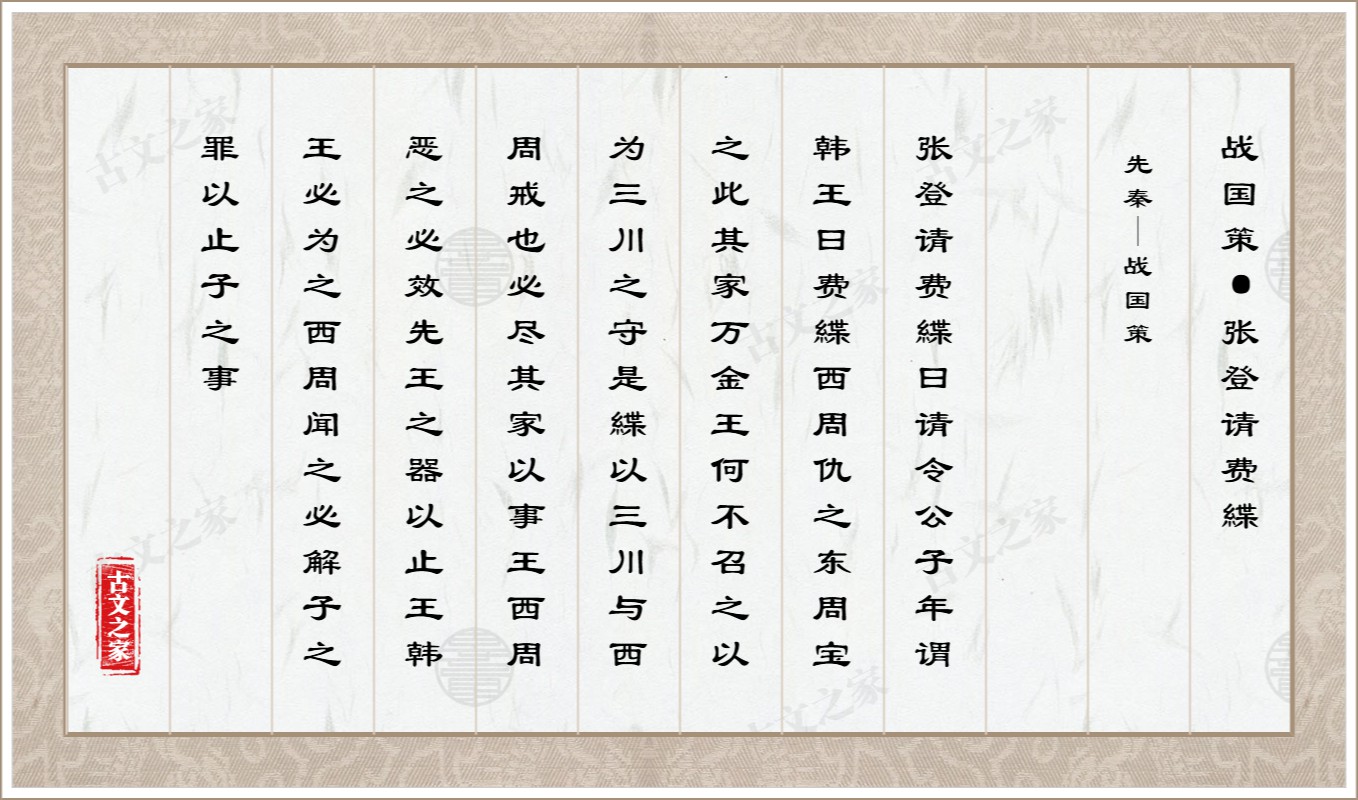 战国策●张登请费緤
先秦—战国策
张登请费緤曰请令公子年谓
韩王曰费緤西周仇之东周宝
之此其家万金王何不召之以
为三川之守是緤以三川与西
周戒也必尽其家以事王西周
恶之必效先王之器以止王韩
王必为之西周闻之必解子之
罪以止子之事
古文之家